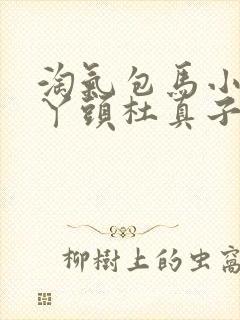 淘氣包馬小
丫頭杜真子
柳樹上的虫窩